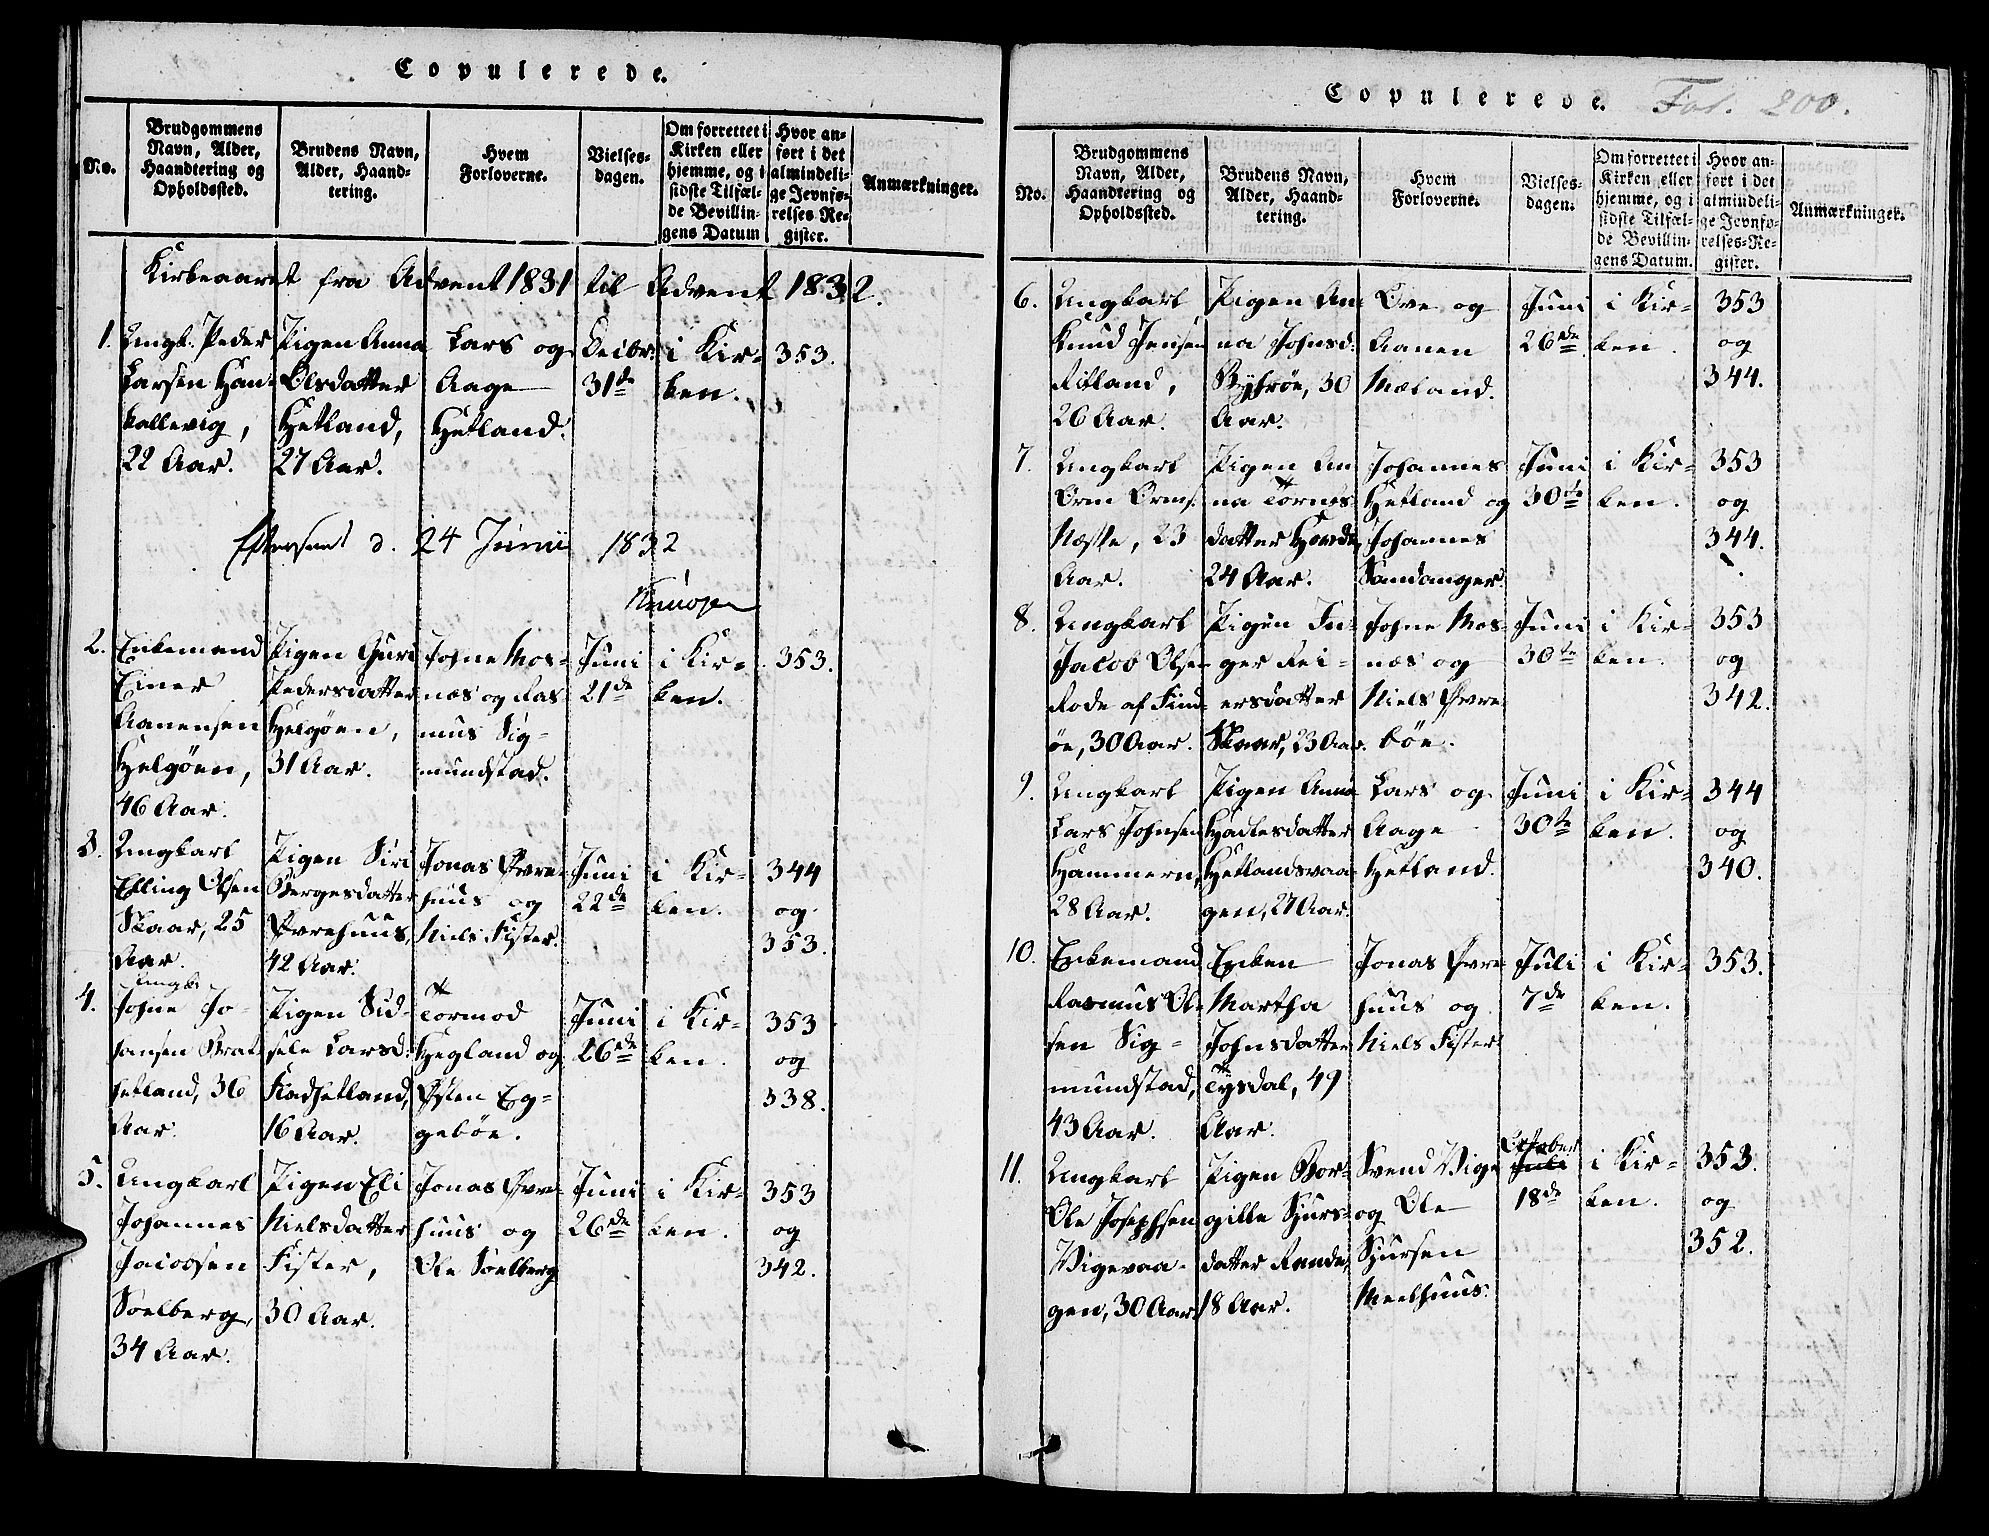 Copulerede.
No.
Brudgommens Navn, Alder, Haandtering og Opholdssted.
Brudens Navn, Alder, Haandtering.
Hvem Forloverne.
Vielses-dagen.
Om forrettet i Kirken eller hjemme, og i sidste Tilfælde Bevillingens Datum
Hvor anført i det almindelige Jevnførelses Register.
Anmærkninger.
Kirkeaaret fra Advent 1831 til Advent 1832.
1. Ungk. Peder Larsen Hankallevig, 22 Aar.
Pigen Anna Olsdatter Hetland, 27 Aar.
Lars og Aage Hetland.
Decbr: 31de
i Kirken.
353.
Efterseet d. 24 Junii 1832
2. Enkemand Einer Aanensen Helgøen, 46 Aar.
Pigen Guri Pedersdatter Helgøen, 31 Aar.
Johne Mosnæs og Rasmus Sigmundstad.
Juni 21de
i Kirken.
353.
3. Ungkarl Elling Olsen Skaar, 25 Aar.
Pigen Siri Børgesdatter Øvrehuus, 42 Aar.
Jonas Øvrehuus og Niels Fister.
Juni 22de
i Kirken.
344 og 353.
4. Ungk. Johne Johansen Brathetland, 36 Aar.
Pigen Sidsele Larsd: Kadhetland, 16 Aar.
Tormod Hegland og Østen Eggebøe.
Juni 26de
i Kirken.
353 og 338.
5. Ungkarl Johannes Jacobsen Soelberg, 34 Aar.
Pigen Eli Nielsdatter Fister, 30 Aar.
Jonas Øvrehuus og Ole Soelberg
Juni 26de
i Kirken.
353 og 342.
Copulerede. Fol. 200.
No.
Brudgommens Navn, Alder, Haandtering og Opholdssted.
Brudens Navn, Alder, Haandtering.
Hvem Forloverne.
Vielses-dagen.
Om forrettet i Kirken eller hjemme, og i sidste Tilfælde Bevillingens Datum.
Hvor anført i det almindelige Jevnførelses-Register.
Anmærkninger.
6. Ungkarl Knud Jensen Ritland, 26 Aar.
Pigen Anna Johnsd: Byrkrøe, 30 Aar.
Ove og Aanen Mæland.
Juni 26de
i Kirken.
353 og 344.
7. Ungkarl Orm Orms: Næsse, 23 Aar.
Pigen Anna Tormosdatter 24 Aar.
Johannes Hetland og Johannes Sandanger.
Juni 30te
i Kirken.
353 og 344.
8. Ungkarl Jacob Olsen Rode af Findøe, 30 Aar.
Pigen Inger Reiersdatter Skaar, 23 Aar.
Johne Mosnæs og Niels Øvrebøe.
Juni 30te
i Kirken.
353 og 342.
9. Ungkarl Lars Johnsen Hammeren, 28 Aar.
Pigen Anna Hadlesdatter Hetlandsvaagen, 27 Aar.
Lars og Aage Hetland.
Juni 30te
i Kirken.
344 og 340.
10. Enkemand Rasmus Olesen Sigmundstad, 43 Aar.
Enken Martha Johnsdatter Tysdal, 49 Aar.
Jonas Øvrehuus og Niels Fister
Juli 7de
i Kirken.
353.
11. Ungkarl Ole Josephsen Vigevaagen, 30 Aar
Pigen Borgille Sjursdatter Rande, 18 Aar.
Svend Vige og Ole Sjursen Meelhuus.
October Juli 18de
i Kirken.
353. og 352.